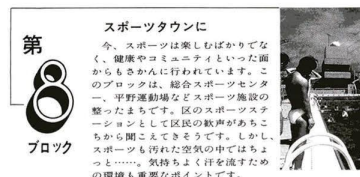 第
8
ブロック
スポーツタウンに
今、スポーツは楽しむばかりでな
く、健康やコミュニティといった面
からもさかんに行われています。こ
のブロックは、総合スポーツセンタ
ー、平野運動場などスポーツ施設の
整ったまちです。区のスポーツステ
ーションとして区民の歓声があちこ
ちから聞こえてきそうです。しかし、
スポーツも汚れた空気の中ではちょ
っと……。気持ちよく汗を流すため
の環境も重要なポイントです。